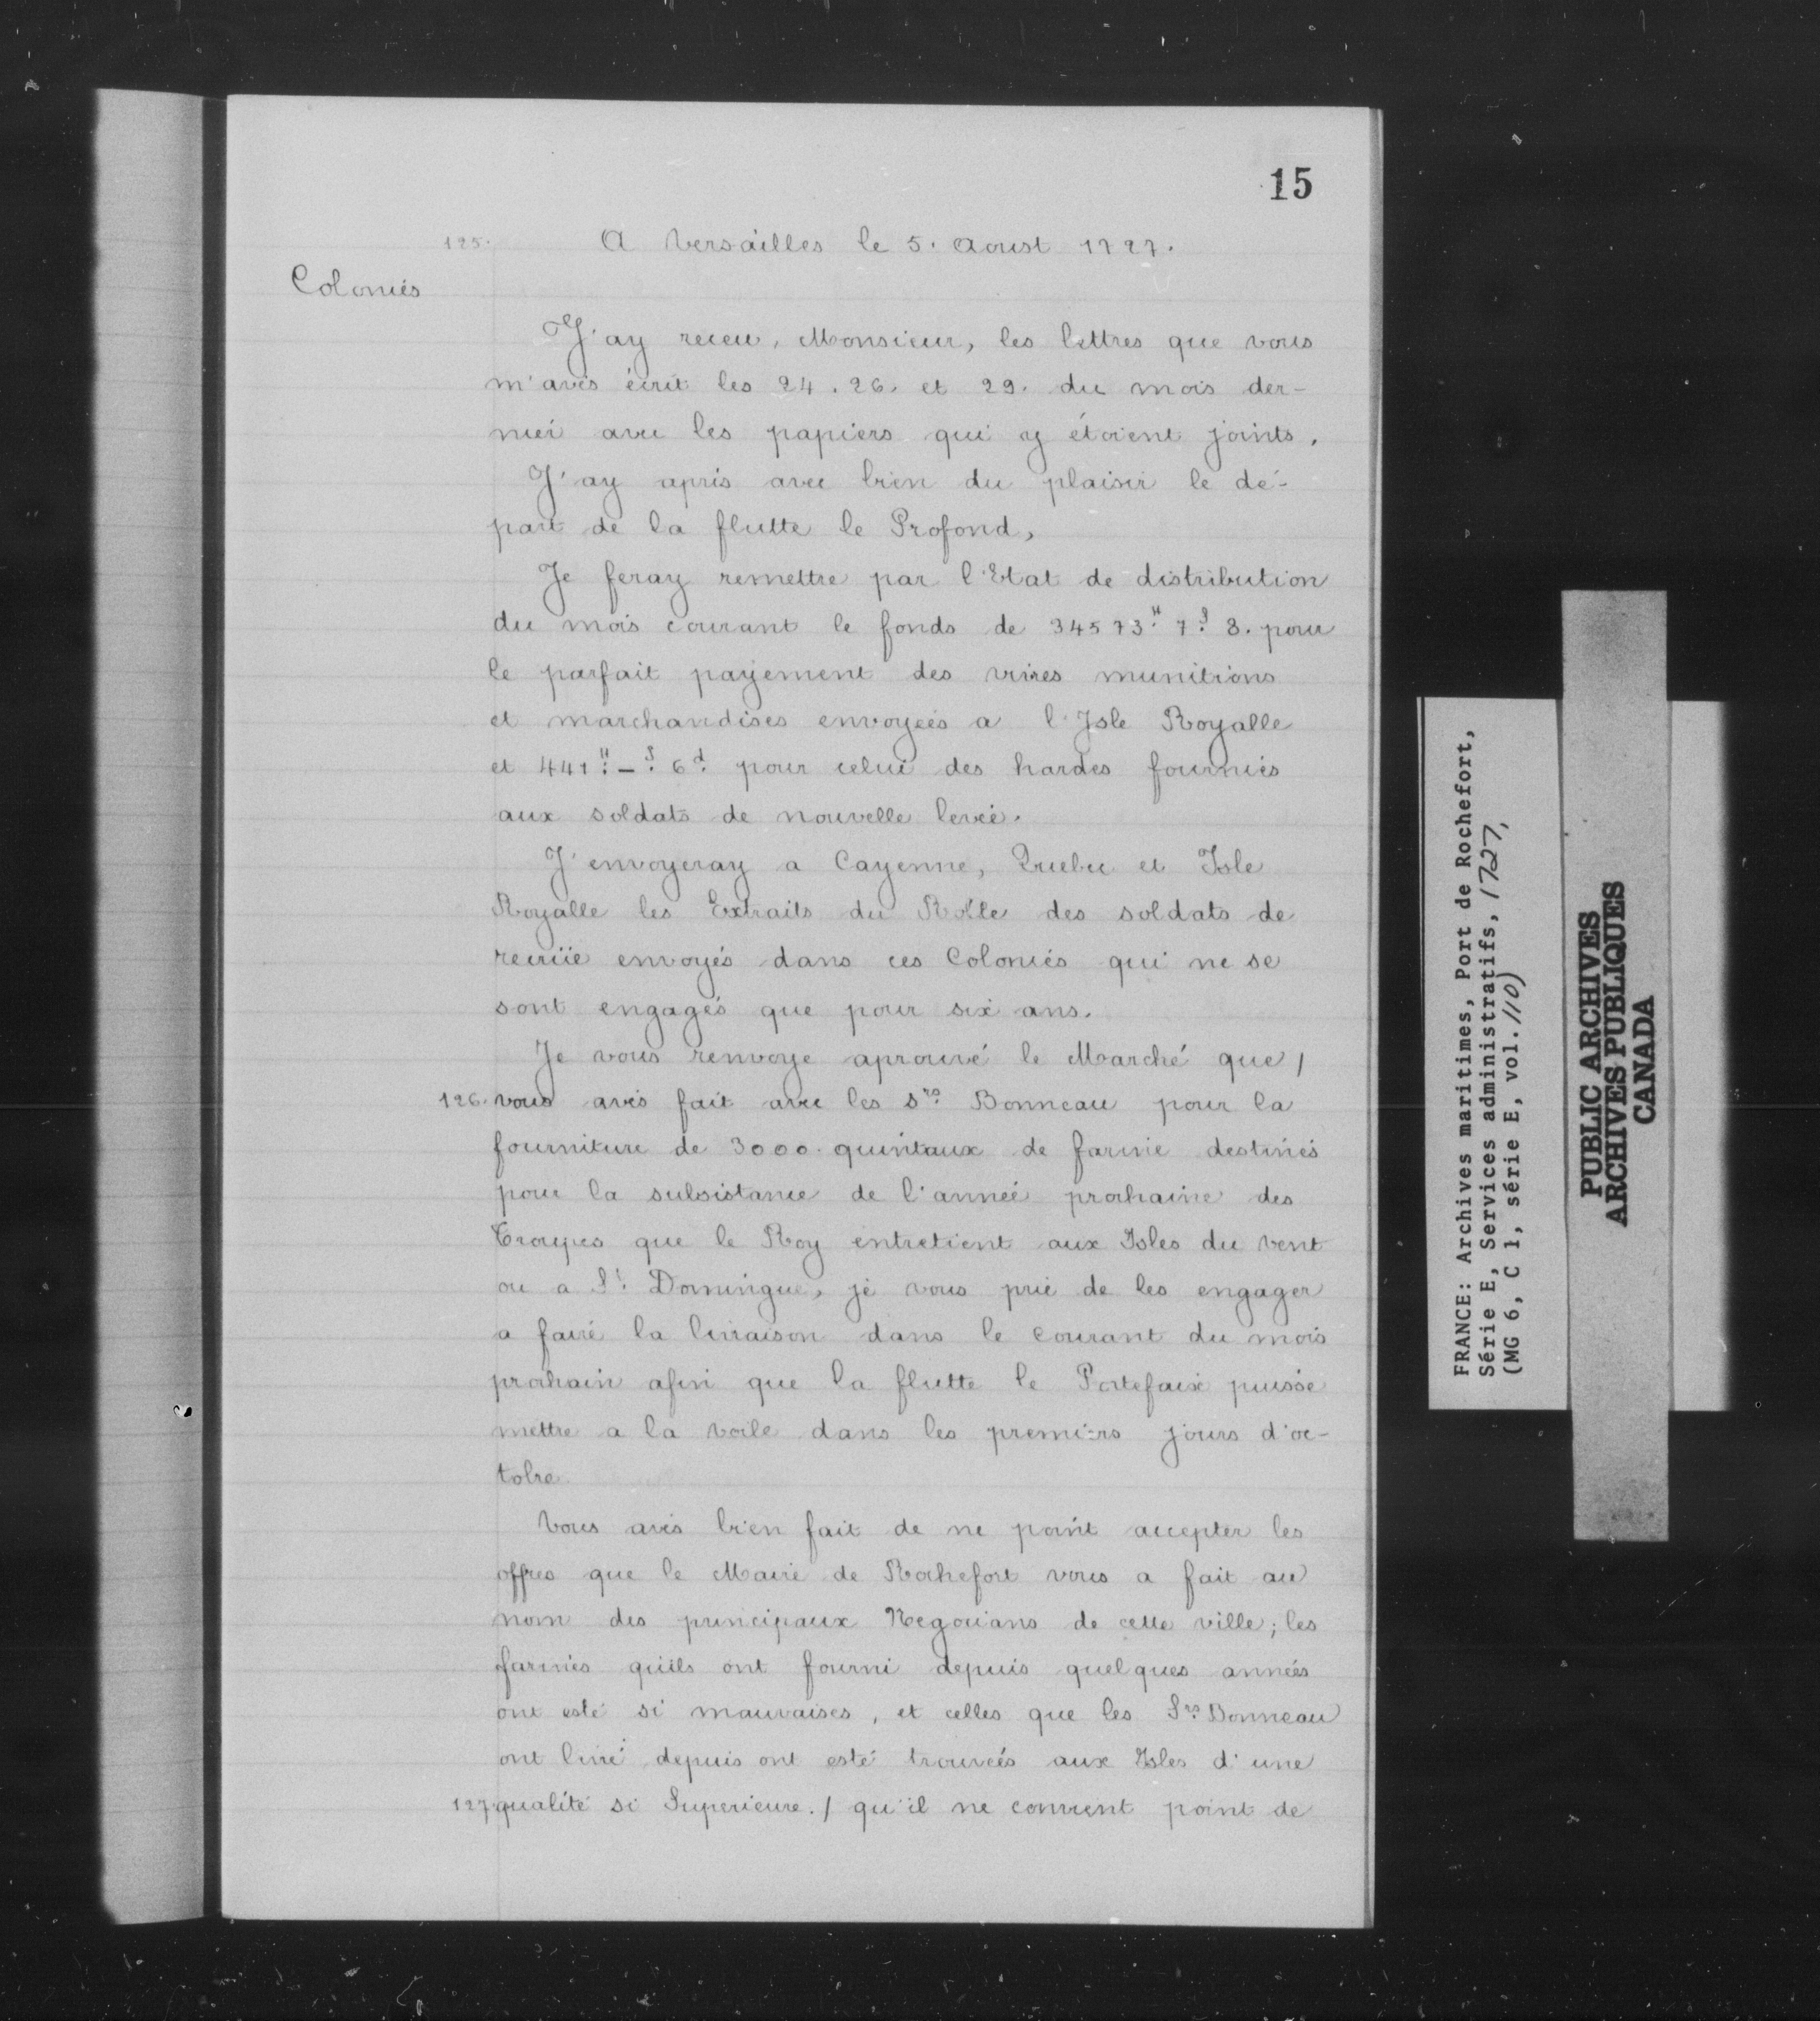 15
125. A Versailles le 5. Aoust 1727.
Colonies
J'ay receu, Monsieur, les lettres que vous
m'avés écrit les 24. 26. et 29. du mois der-
nier avec les papiers qui y étoient joints.
J'ay apris avec bien du plaisir le dé-
part de la flutte le Profond,
Je feray remettre par l'Etat de distribution
du mois courant le fonds de 34573.ᴴ 7.ˢ 8. pour
le parfait payement des vivres munitions
et marchandises envoyées a l'Isle Royalle
et 441.ᴴ _.ˢ 6.ᵈ pour celui des hardes fournies
aux soldats de nouvelle levée.
J'envoyeray a Cayenne, Quebec et Isle
Royalle les Extraits du Rolle des soldats de
recrüe envoyés dans ces Colonies qui ne se
sont engagés que pour six ans.
Je vous renvoye aprouvé le Marché que /
126. vous avés fait avec les s.ʳˢ Bonneau pour la
fourniture de 3000. quintaux de farine destinés
pour la subsistance de l'année prochaine des
Troupes que le Roy entretient aux Isles du vent
ou a S.ᵗ Domingue, je vous prie de les engager
a faire la livraison dans le courant du mois
prochain afin que la flutte le Portefaix puisse
mettre a la voile dans les premiers jours d'oc-
tobre
Vous avés bien fait de ne point accepter les
offres que le Maire de Rochefort vous a fait au
nom des principaux Negocians de cette ville; les
farines qu'ils ont fourni depuis quelques années
ont esté si mauvaises, et celles que les S.ʳˢ Bonneau
ont livré depuis ont esté trouvées aux Isles d'une
127. qualité si Superieure. / qu'il ne convient point de
FRANCE: Archives maritimes, Port de Rochefort,
Série E, Services administratifs, 1727,
(MG 6, C 1, série E, vol. 110)
PUBLIC ARCHIVES
ARCHIVES PUBLIQUES
CANADA